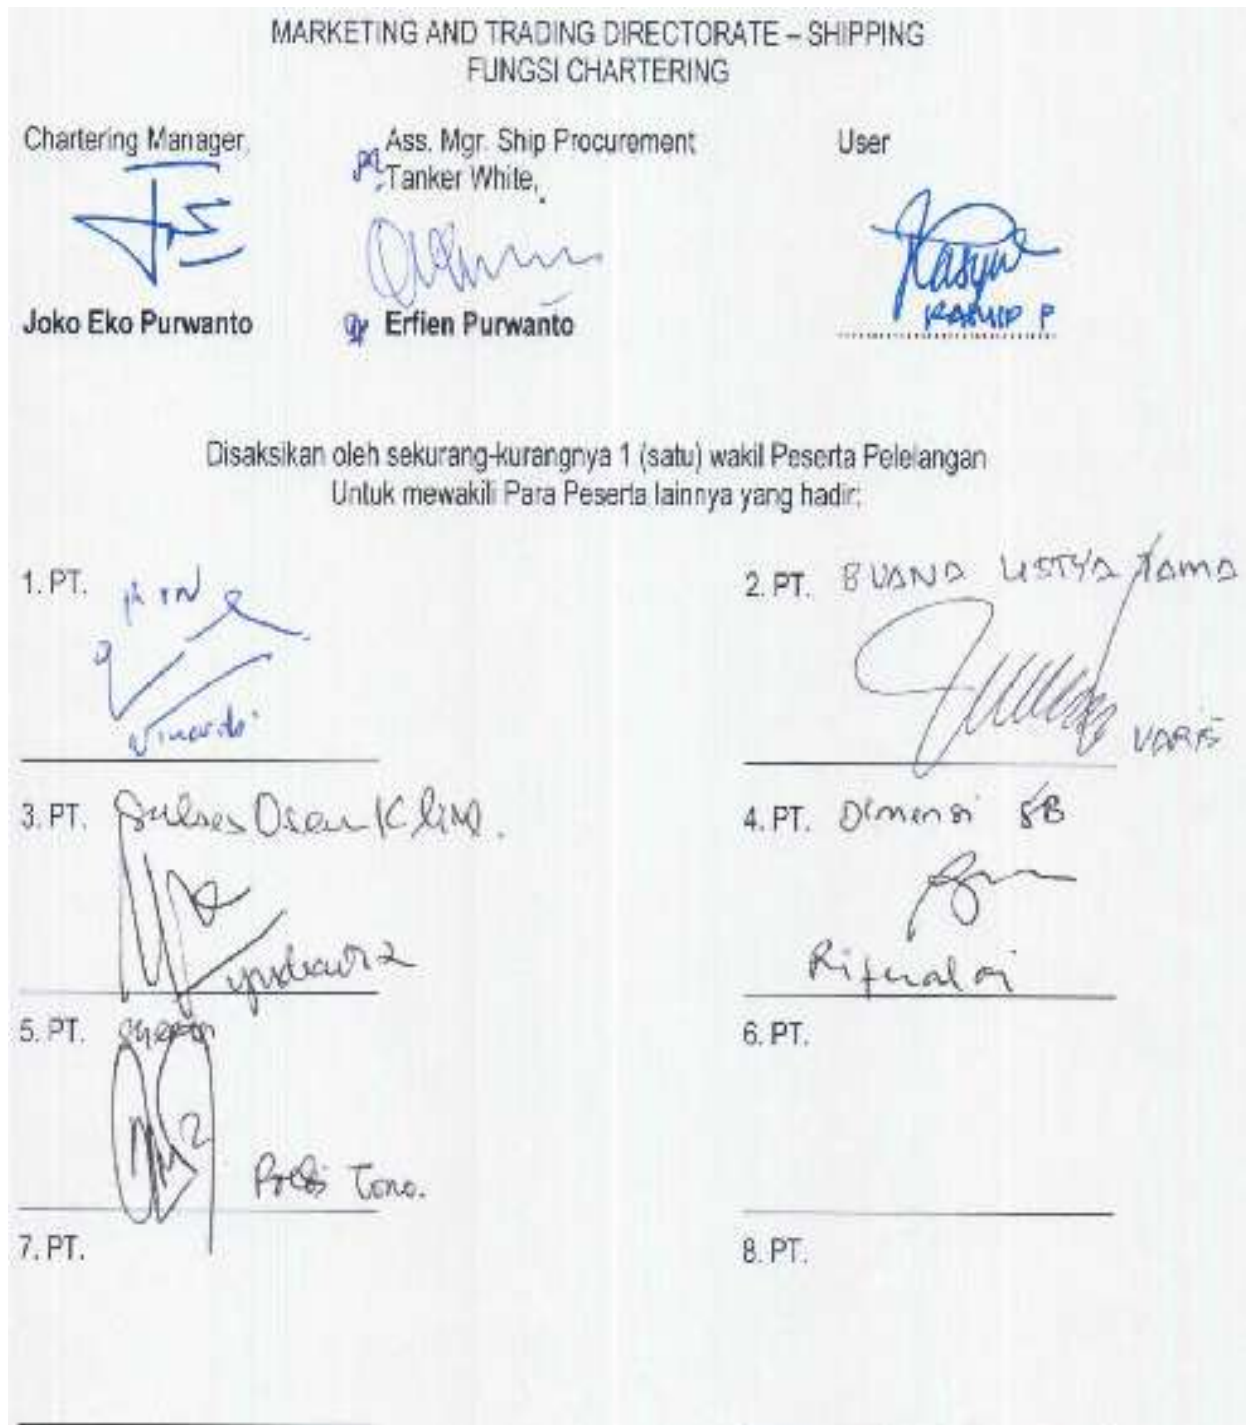 MARKETING AND TRADING DIRECTORATE – SHIPPING
FUNGSI CHARTERING
Chartering Manager,
Ass. Mgr. Ship Procurement
Tanker White,
User
Joko Eko Purwanto
Erfien Purwanto
Disaksikan oleh sekurang-kurangnya 1 (satu) wakil Peserta Pelelangan
Untuk mewakili Para Peserta lainnya yang hadir:
1. PT.
2. PT. BUANA LISTYA TAMA
VARIS
3. PT. Sukses Osean
4. PT. Dimensi
5. PT.
Tono.
6. PT.
7. PT.
8. PT.